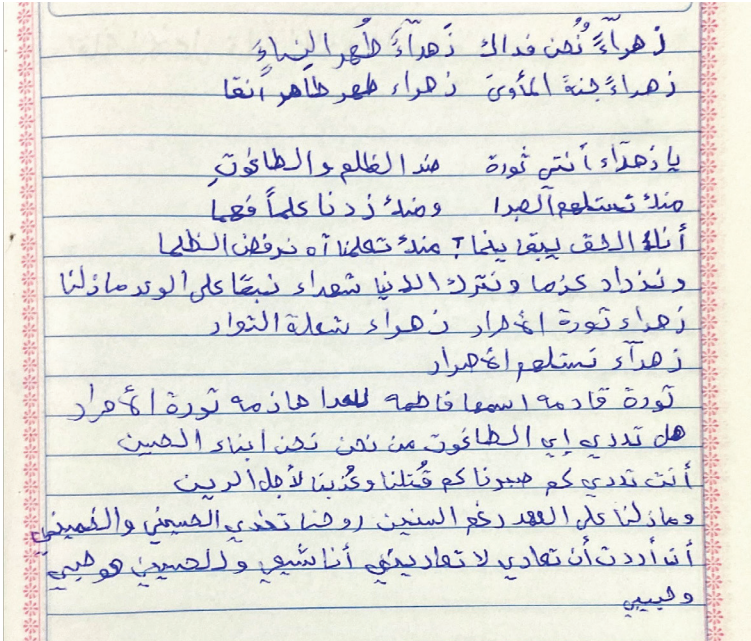 زهرآءً نُحن فداك زَهرآءَ طُهر النساءَ
زهراءً جنةَ المأوىَ زهراء طهر طاهر أنقا
يا زهرآء أنتي ثورة ضد الظلم والطاغوتِ
منك تستلهم الصدا ومنك زدنا علماً فهما
الحق يبقا ينما منك تعلمنا نرفض الظلما
ونزداد عزما ونترك الدنيا شهداء نبقا على الوعد ما زلنا
زهراء ثورة الأحرار زهراء شعلة الثوار
زهرآء تستلهم الأحرار
ثورة قادمه اسمها فاطمه للعدا هازمه ثورة الأحرار
هل تدري إي الطاغوت من نحن نحن ابناء الحسين
أنت تدري كم صبرنا كم قُتلنا وعُذبنا لأجل الدين
وما زلنا على العهد رغم السنين روحنا تفدي الحسيني والخميني
أن أردت أن تعادي لا تعاديني أنا شيعي والحسين هو حبي
وحبيبي